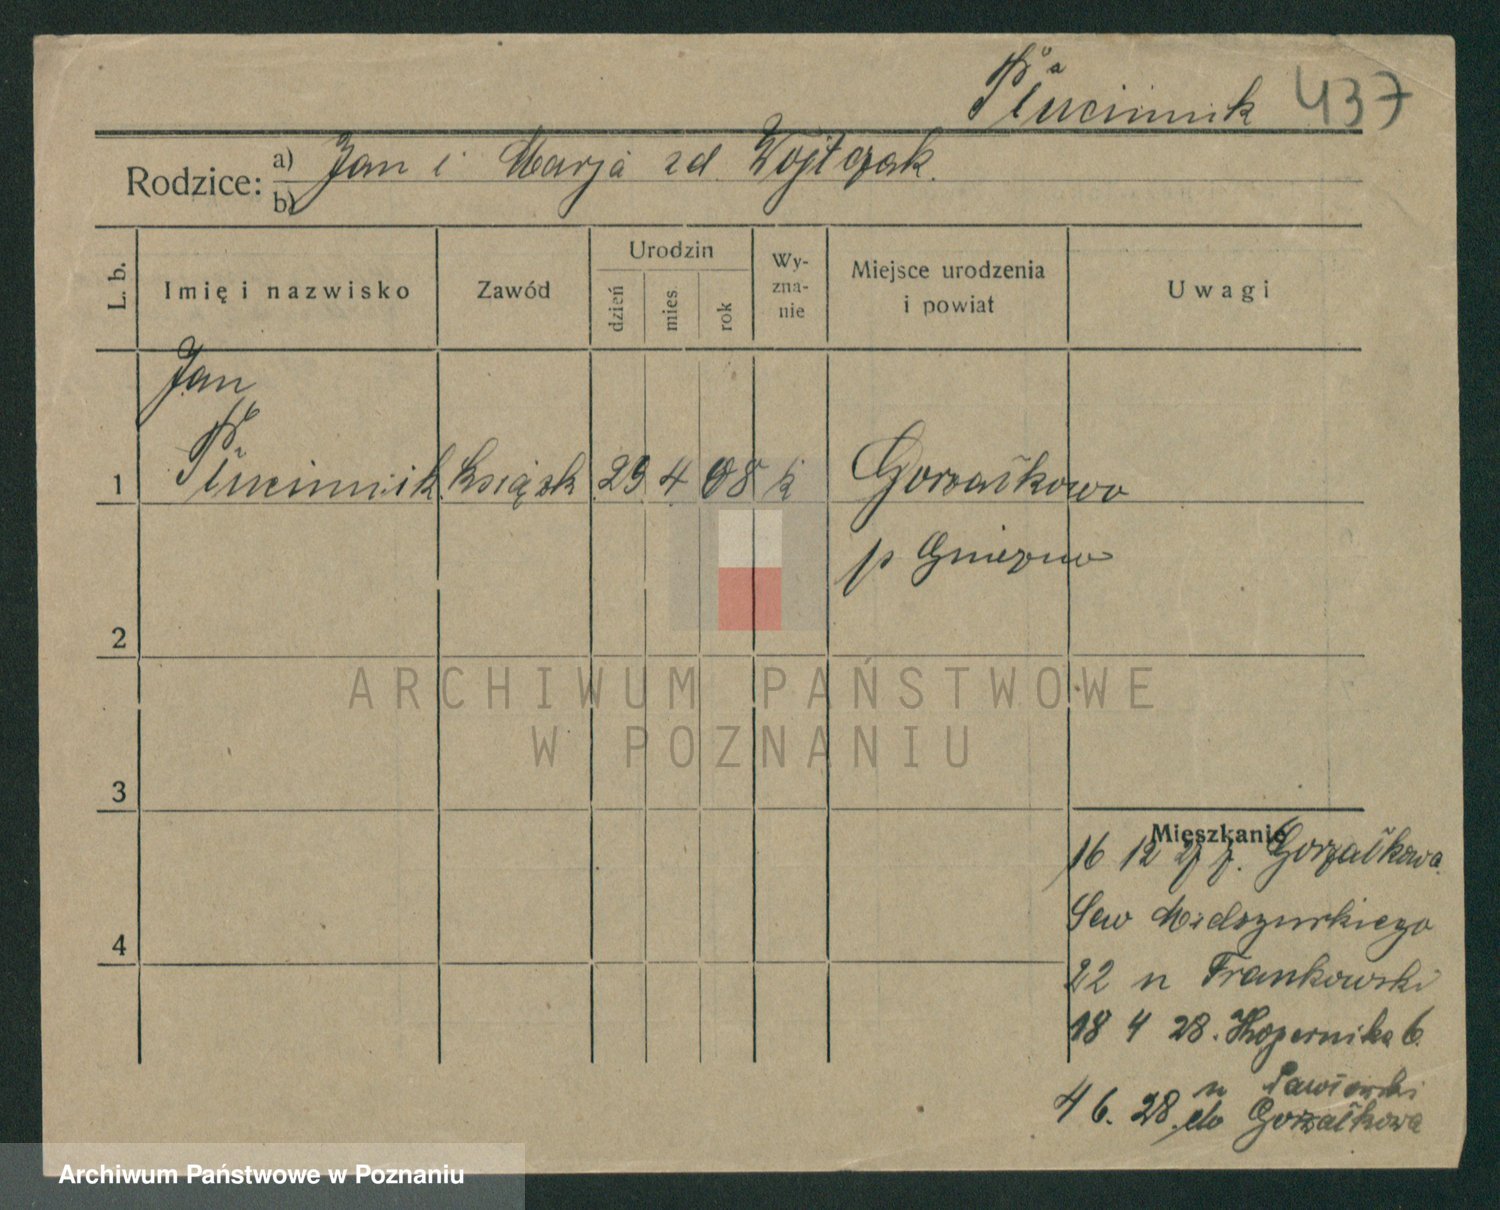 Płuciennik 437
Rodzice: a) Jan i Marja zd. Wojtczak.
b)
L. b.
Imię i nazwisko
Zawód
Urodzin
dzień
mies.
rok
Wy-
zna-
nie
Miejsce urodzenia
i powiat
Uwagi
Jan
1 Płuciennik 29 4 08 k Gorzałkowo
p Gniezno
2
3
4
Mieszkanie
16 12 27 z. Gorzałkowa
Sew Mielżyńskiego
22 n Frankowski
18 4 28. Kopernika 6.
n Pawłowski
4 6. 28. do Gorzałkowa
ARCHIWUM PAŃSTWOWE
W POZNANIU
Archiwum Państwowe w Poznaniu